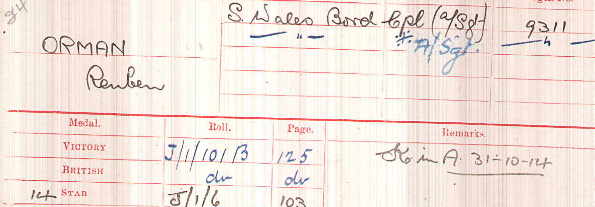 S. Wales Bord Cpl (a/Sgt) 9311
" * A/Sgt. "
ORMAN
Reuben
Medal. Roll. Page. Remarks.
VICTORY J/1/101 B 125 K. in A. 31-10-14
BRITISH do do
14 STAR J/1/6 103